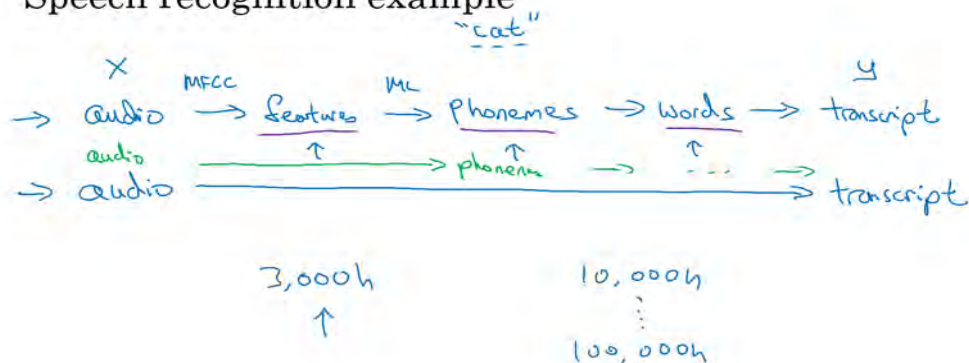 Speech recognition example
"cat"
X MFCC ML y
→ audio → features → phonemes → words → transcript
audio → phonem → ... →
→ audio → transcript
3,000h 10,000h
100,000h